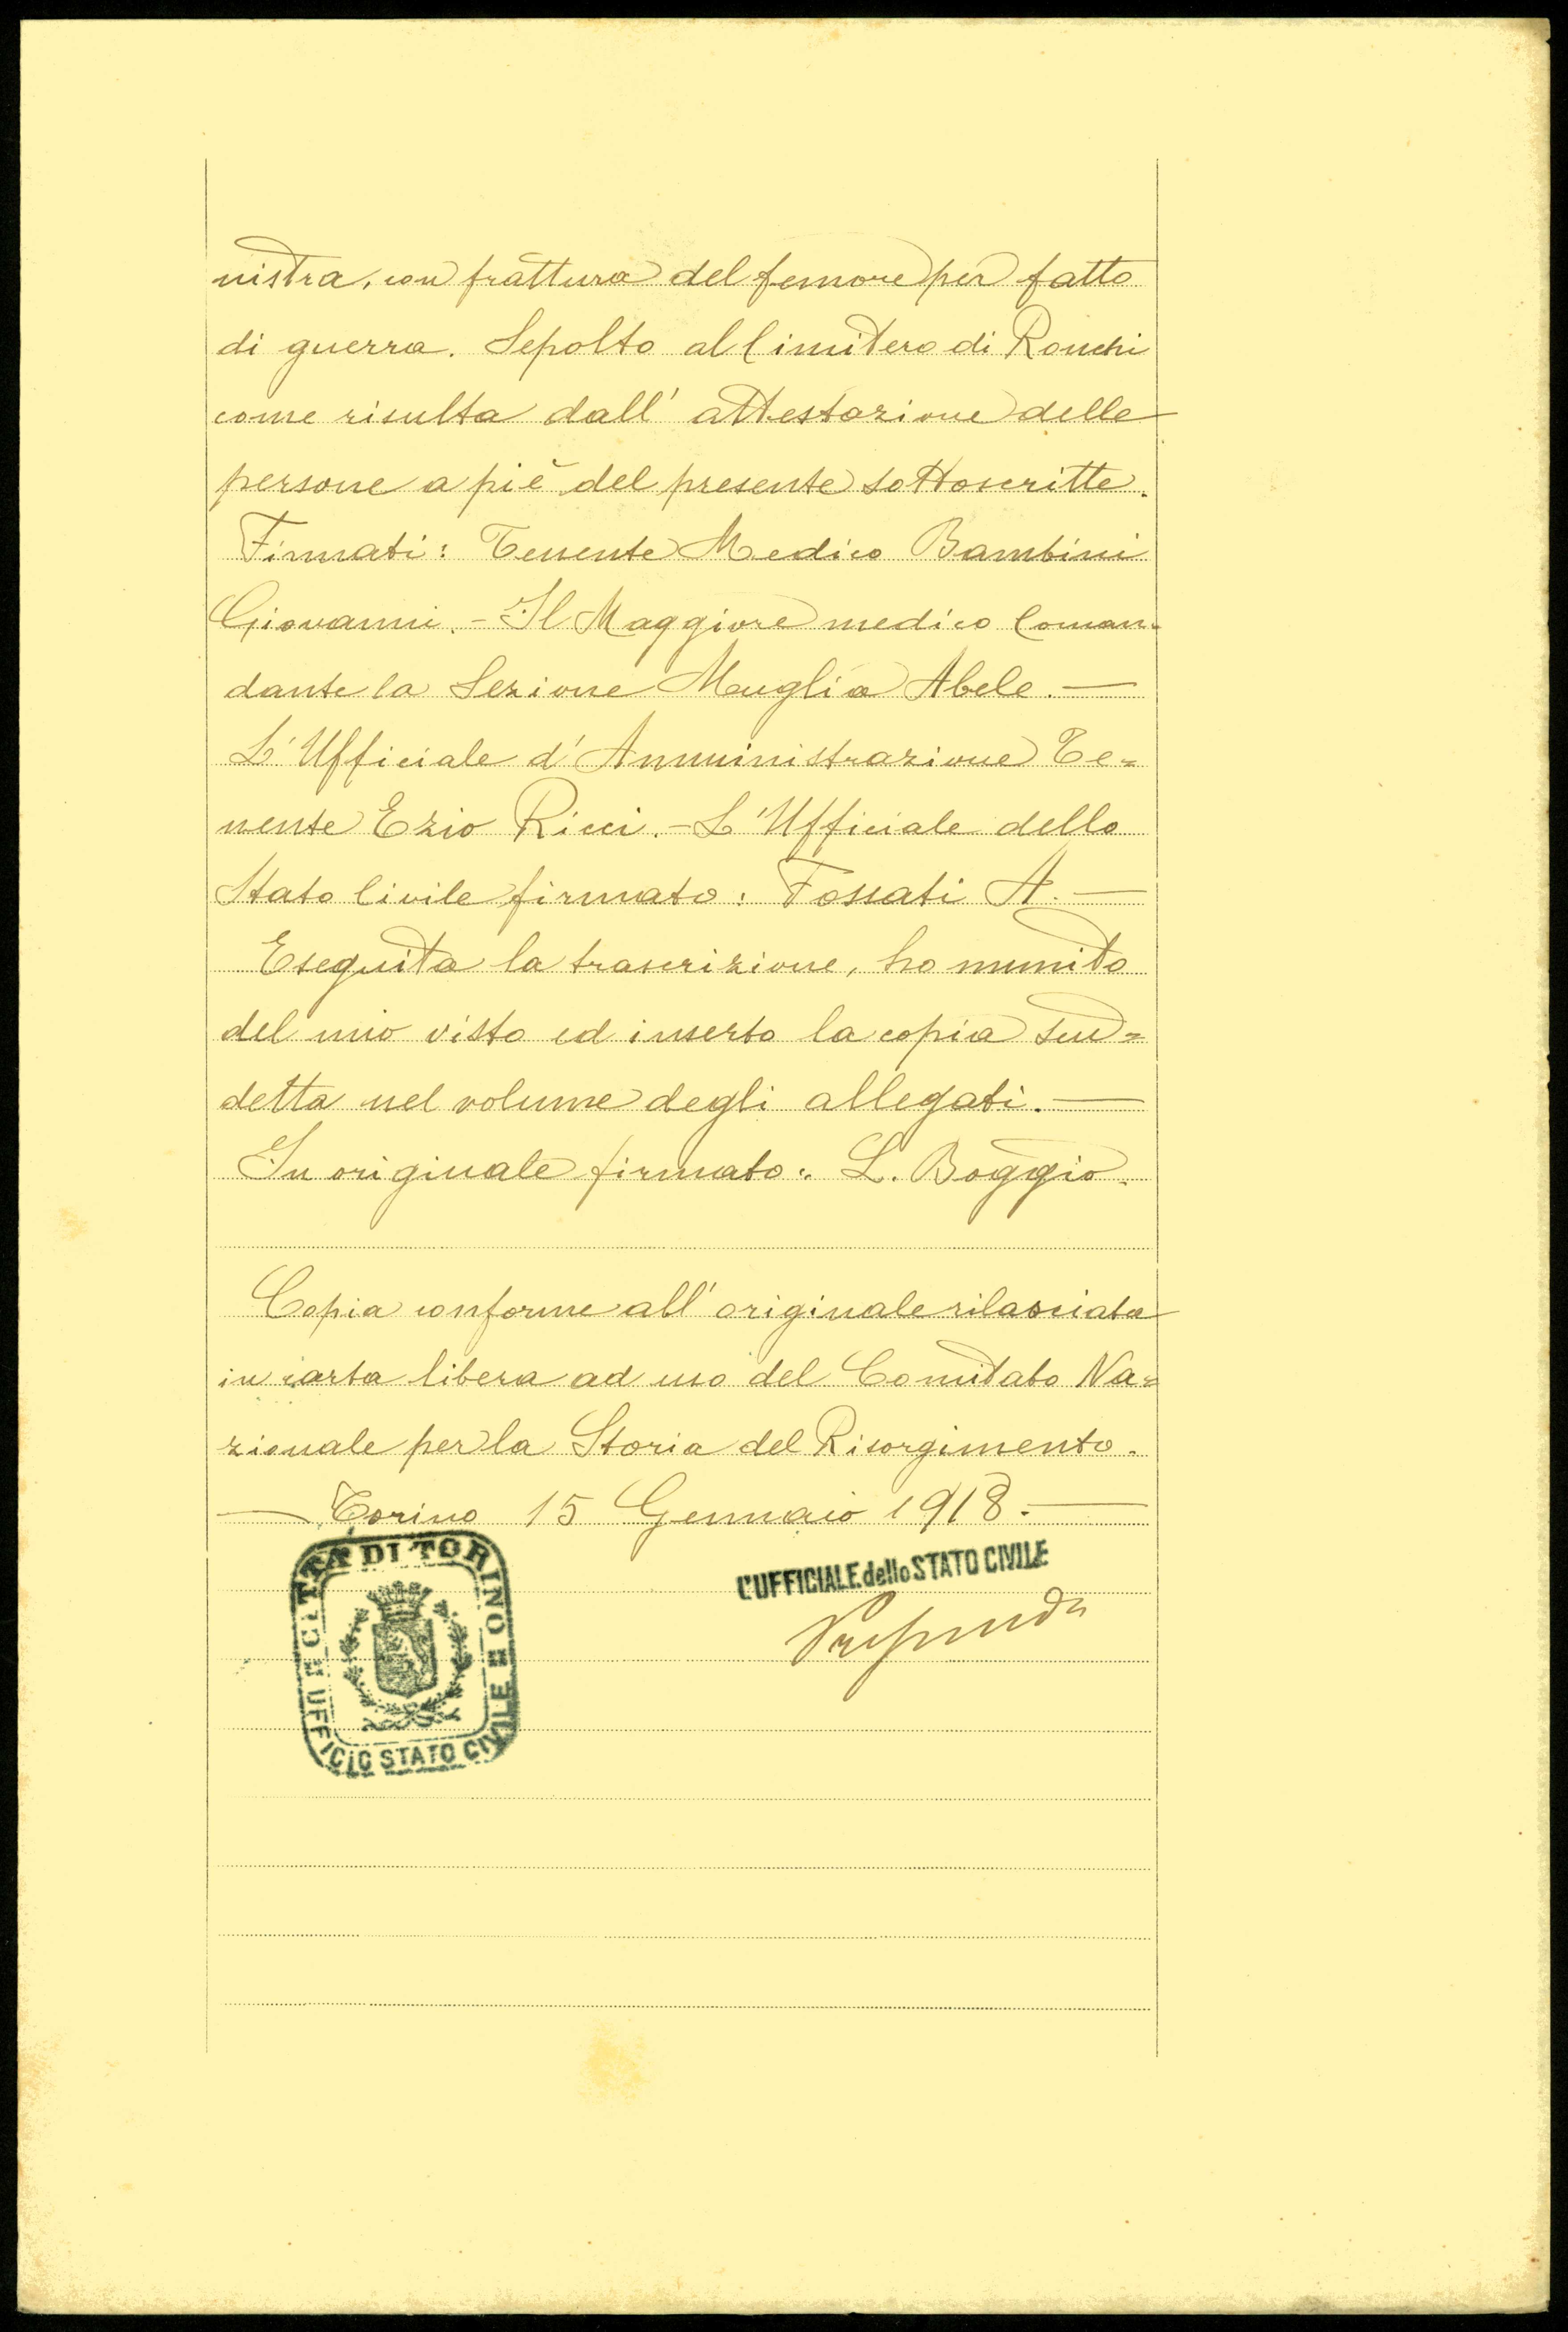 nistra, con frattura del femore per fatto
di guerra. Sepolto al Cimitero di Ronchi
come risulta dall' attestazione delle
persone a piè del presente sottoscritte.
Firmati: Tenente Medico Bambini
Giovanni. - Il Maggiore medico Coman-
dante la Sezione Muglia Abele. —
L'Ufficiale d'Amministrazione Te=
nente Ezio Ricci. - L'Ufficiale dello
Stato Civile firmato: Fossati A. —
Eseguita la trascrizione, ho munito
del mio visto ed inserto la copia sud=
detta nel volume degli allegati. —
In originale firmato: L. Boggio.
Copia conforme all' originale rilasciata
in carta libera ad uso del Comitato Na=
zionale per la Storia del Risorgimento.
— Torino 15 Gennaio 1918. —
L'UFFICIALE dello STATO CIVILE
CITTÀ DI TORINO
UFFICIO STATO CIVILE